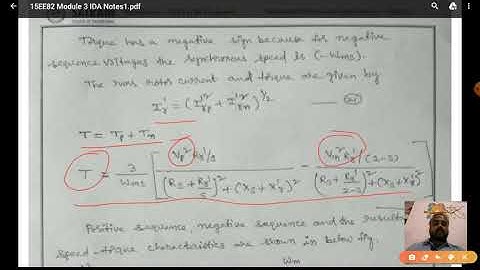 15EE82 Module 3 IDA Notes1.pdf
Torque has a negative sign because for negative
sequence voltages the synchronous speed is (-Wms).
The rms rotor current and torque are given by
Ir' = (Irp'² + Irn'²)^1/2 —
T = Tp + Tn
T = 3/Wms [ Vp² Rr'/s / ((Rs + Rr'/s)² + (Xs + Xr')²) - Vn² Rr'/(2-s) / ((Rs + Rr'/2-s)² + (Xs + Xr')²) ]
Positive sequence, negative sequence and the
speed-torque characteristics are shown in below fig.
Wm